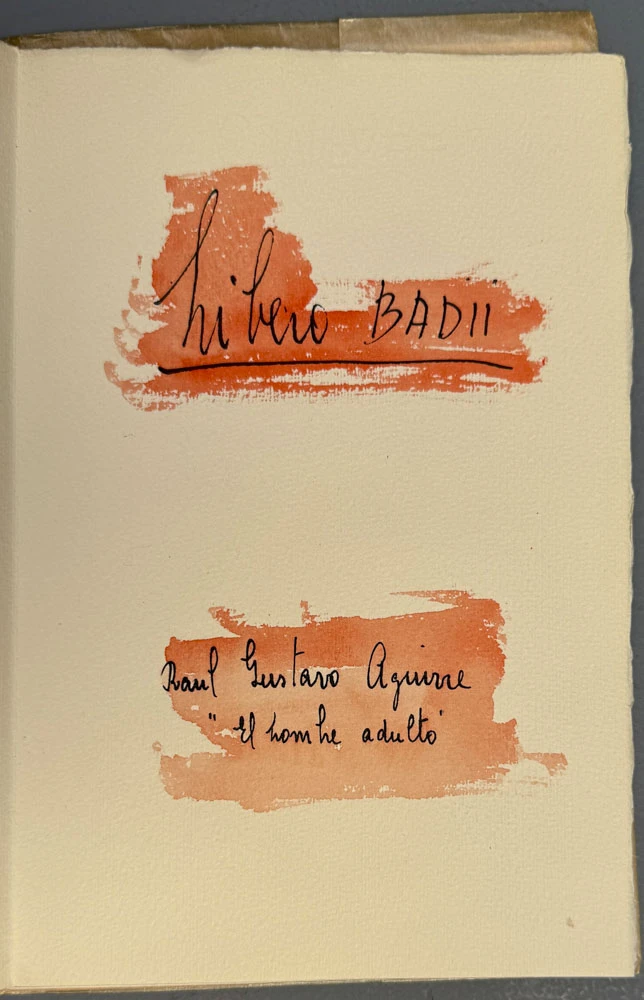 Libero BADII
Raul Gustavo Aguirre
" El hombre adulto"